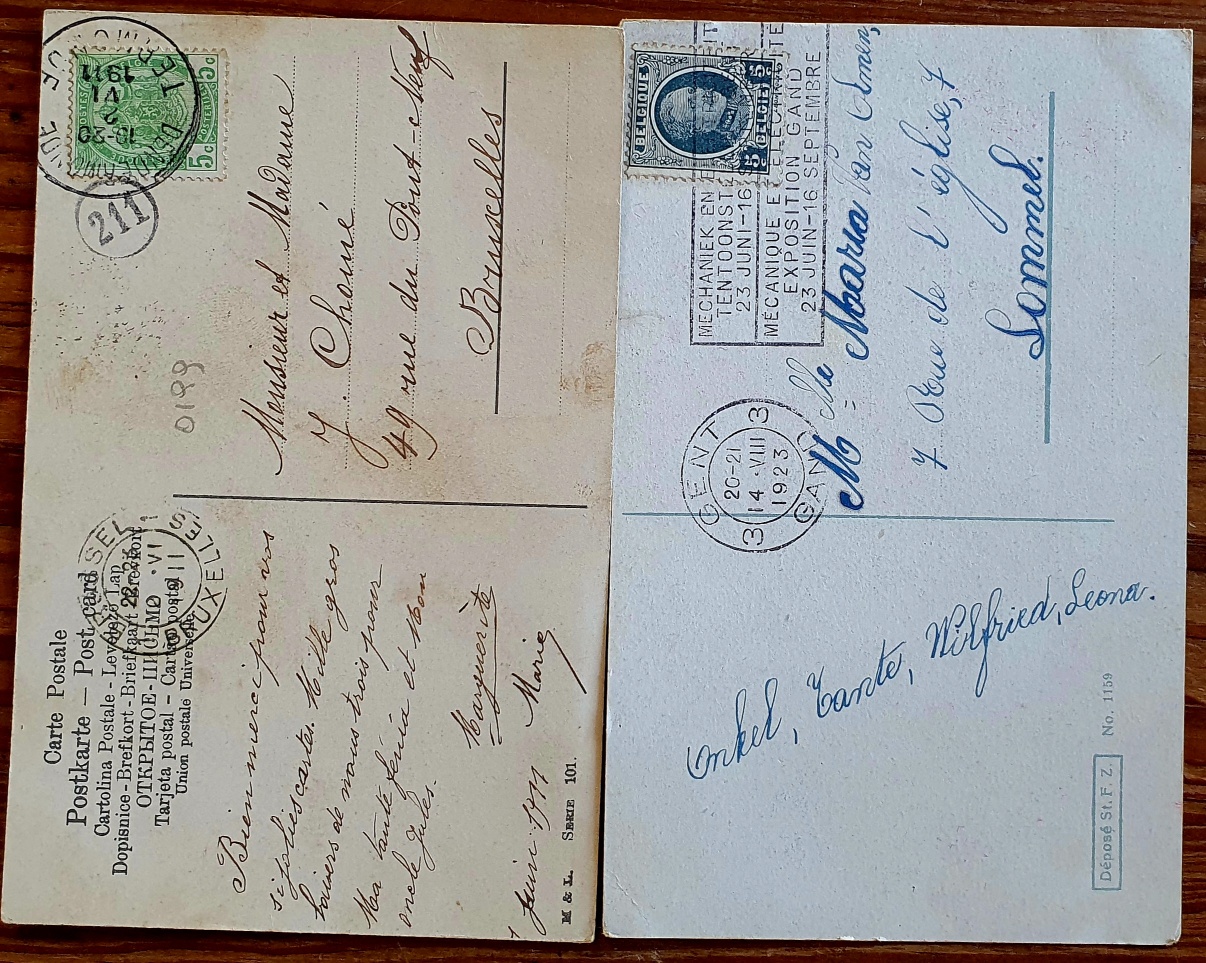 Carte Postale
Postkarte — Post card
Cartolina Postale - Levelező Lap
Dopisnice - Brefkort - Briefkaart - Brevkort
ОТКРЫТОЕ - ПИСЬМО
Tarjeta postal - Cartão postal
Union postale Universelle
BRUXELLES
22-23
VI
1911
Bien merci pour vos
si jolies cartes. Mille gros
baisers de nous trois pour
Ma tante Fénia et Mon
oncle Jules.
Marguerite
Marie
Juin 1911
M & L. SERIE 101.
TERMONDE
DENDERMONDE
18-20
VI
1911
5c
POSTES
5c
211
0199
Monsieur et Madame
J Chemé
49 rue du Pont-Neuf
Bruxelles
BELGIQUE
BELGIË
5c
5c
MECHANIEK EN
TENTOONST
23 JUNI-16 S
MÉCANIQUE E ÉLECTRICITÉ
EXPOSITION GAND
23 JUIN-16 SEPTEMBRE
GENT
3 3
20-21
14 · VIII
1923
GAND
Mlle Maria Van
7 Rue de l'église, 7
Lommel.
Onkel, Tante, Wilfried, Leona.
Déposé St. F. Z. No. 1159